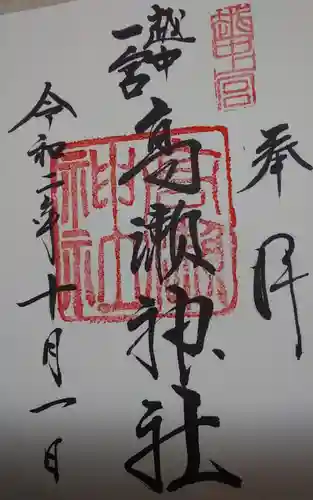 奉拝
越中
一宮
高瀬神社
令和二年十月一日
越中一宮
高瀬神社